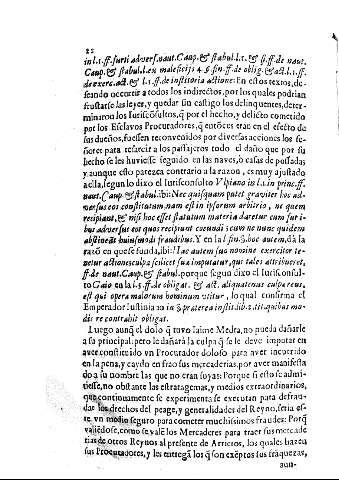 22
in l.1.ff. furti adversf. naut. Caup. & stabul. l.1. & §. ff. de naut.
Caup. & stabul. l. en maleficijs 4. § fin. ff. de oblig. & act. l.1. ff.
de exerc. act. & l.1. ff. de institoria actione: En estos textos, de-
seando ocurrir a todos los indirectos, por los quales podrian
frustarse las leyes, y quedar sin castigo los delinquentes, deter-
minaron los Iurisconsultos, q̃ por el hecho, y delicto cometido
por los Esclavos Procuradores, q̃ entõces eran en efecto de
sus dueños, fuessen reconvenidos por diversas acciones los se-
ñores para resarcir a los passajeros todo el daño que por su
hecho se les huviesse seguido en las naves, ò casas de possadas
y aunque esto parezca contrario a la razon, es muy ajustado
a ella, segun lo dixo el Iurisconsulto Vlpiano in l.1. in princ. ff.
naut. Caup. & stabul. ibi: Nec quisquam putet graviter hoc ad-
versus eos constitutum, nam est in ipsorum arbitrio, ne quem
recipiant, & nisi hoc esset statutum materia daretur cum fur i-
bus adversus eos quos recipiunt coeundi cum ne nunc quidem
abstineãt huiusmodi fraudibus. Y en la l. fin. §. hoc autem, dà la
razon en que se funda, ibi: Hac autem suo nomine exercitor te-
netur actiones culpæ scilicet sua imputatur, quòd tales
ff. de naut. Caup. & stabul. porque segun dixo el Iurisconsul-
to Gaio en la l.5. ff. de obligat. & act. aliquatenus culpæ reus,
est qui opera malorum hominum vtitur, lo qual confirma el
Emperador Iustinia.10 in § præterea instit. lib.2. tit. quibus mo-
dis re contrahit obligat.
Luego aunq̃ el dolo q̃ tuvo Iaime Medra, no pueda dañarle
a su principal. pero le dañarà la culpa q̃ se le deve imputar en
aver constituido vn Procurador doloso para aver incurrido
en la pena, y caydo en fizo sus mercaderias, por aver manifesta
do a su nombre las que no eran suyas: Porque si esto se admi-
tiesse, no obstante las estratagemas, y medios extraordinarios,
que continuamente se experimenta se executan para defrau-
dar los drechos del peage, y generalidades del Reyno, seria es-
te vn medio seguro para cometer muchissimos fraudes: Porq̃
valiẽdose, como se valẽ los Mercaderes para traer sus mercade
rias de otros Reynos al presente de Arrieros, los quales hazẽ
sus Procuradores, y les entregã los q̃ son exẽptos sus fraquezas,
aun-